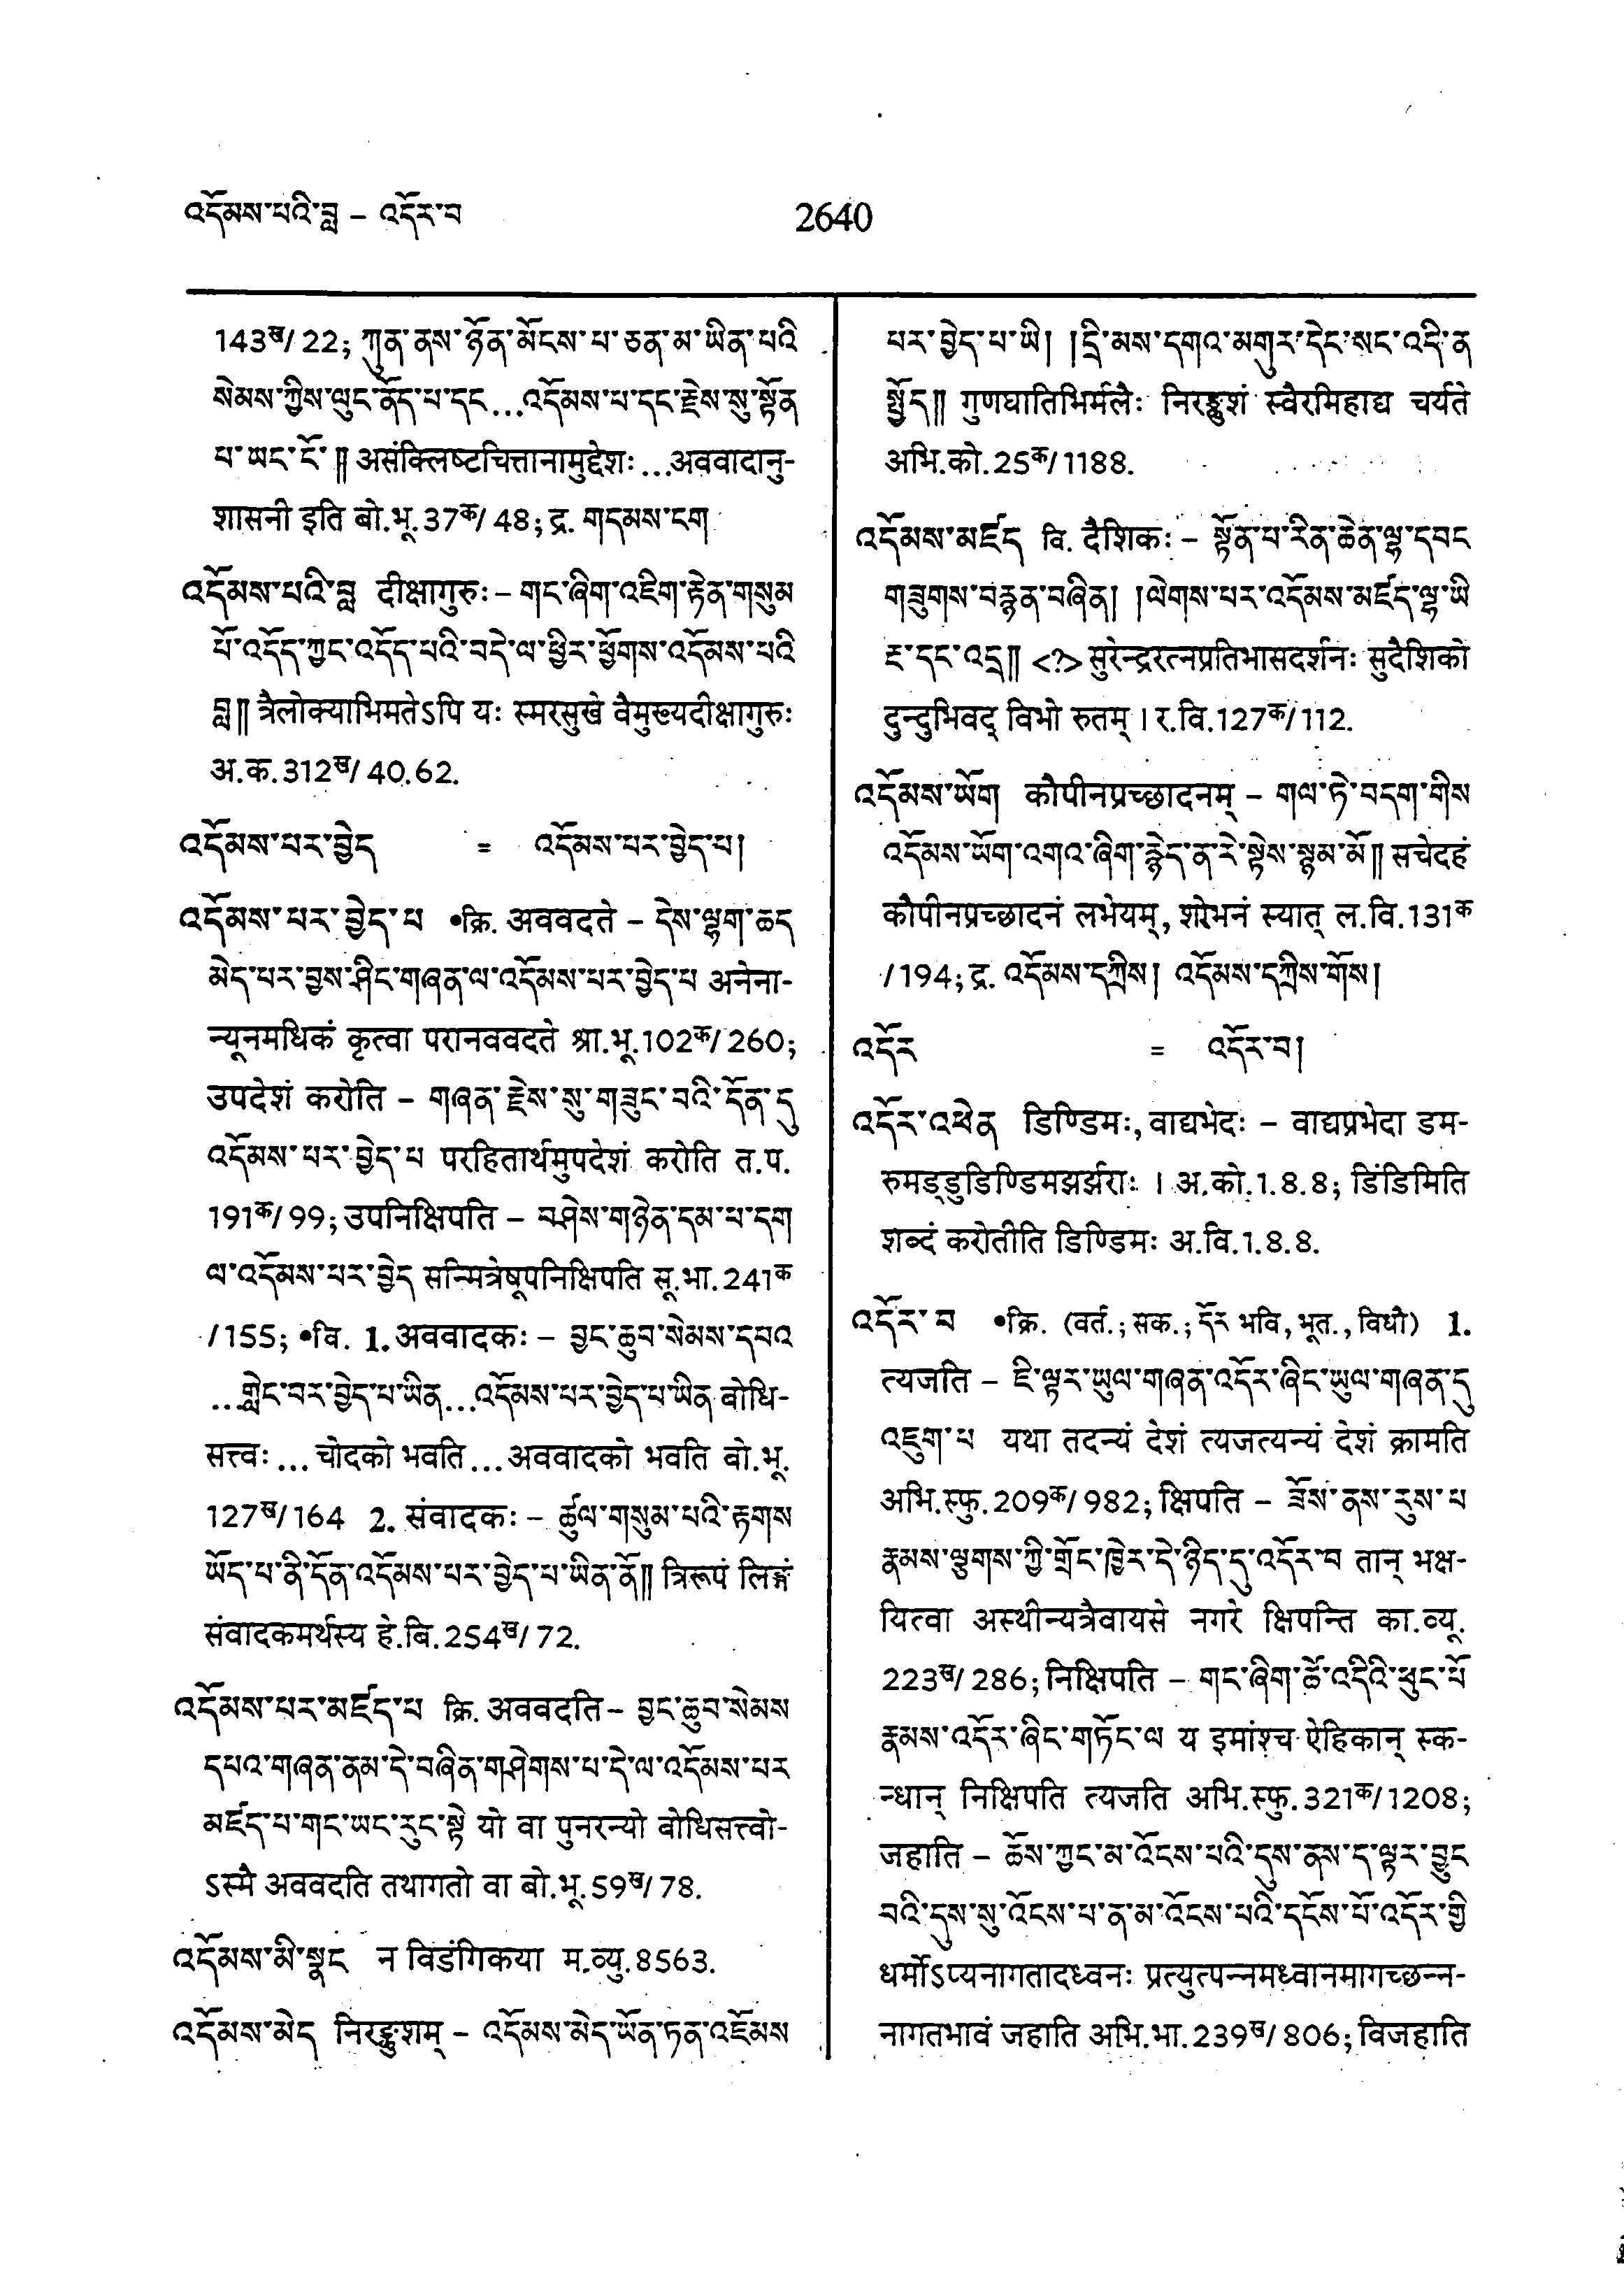 འདོམས་པའི་བླ – འདོར་བ
2640
143ख/22; ཀུན་ནས་ཉོན་མོངས་པ་ཅན་མ་ཡིན་པའི
སེམས་ཀྱིས་ལུང་ནོད་པ་དང...འདོམས་པ་དང་རྗེས་སུ་སྟོན
པ་ཡང་ངོ་༎ असंक्लिष्टचित्तानामुद्देशः...अववादानु-
शासनी इति बो.भू.37क/48; द्र. གདམས་ངག
འདོམས་པའི་བླ दीक्षागुरुः – གང་ཞིག་འཇིག་རྟེན་གསུམ
པོ་འདོད་ཀྱང་འདོད་པའི་བདེ་ལ་ཕྱིར་ཕྱོགས་འདོམས་པའི
བླ༎ त्रैलोक्याभिमतेऽपि यः स्मरसुखे वैमुख्यदीक्षागुरुः
अ.क.312ख/40.62.
འདོམས་པར་བྱེད = འདོམས་པར་བྱེད་པ།
འདོམས་པར་བྱེད་པ •क्रि. अववदते – དེས་ལྷག་ཆད
མེད་པར་བྱས་ཤིང་གཞན་ལ་འདོམས་པར་བྱེད་པ अनेना-
न्यूनमधिकं कृत्वा परानववदते श्रा.भू.102क/260;
उपदेशं करोति – གཞན་རྗེས་སུ་གཟུང་བའི་དོན་དུ
འདོམས་པར་བྱེད་པ परहितार्थमुपदेशं करोति त.प.
191क/99; उपनिक्षिपति – བཤེས་གཉེན་དམ་པ་དག
ལ་འདོམས་པར་བྱེད सन्मित्रेषूपनिक्षिपति सू.भा.241क
/155; •वि. 1. अववादकः – བྱང་ཆུབ་སེམས་དཔའ
...གླེང་བར་བྱེད་པ་ཡིན...འདོམས་པར་བྱེད་པ་ཡིན बोधि-
सत्त्वः...चोदको भवति...अववादको भवति बो.भू.
127ख/164 2. संवादकः – ཚུལ་གསུམ་པའི་རྟགས
ཡོད་པ་ནི་དོན་འདོམས་པར་བྱེད་པ་ཡིན་ནོ༎ त्रिरूपं लिङ्गं
संवादकमर्थस्य हे.बि.254ख/72.
འདོམས་པར་མཛད་པ क्रि. अववदति – བྱང་ཆུབ་སེམས
དཔའ་གཞན་ནམ་དེ་བཞིན་གཤེགས་པ་དེ་ལ་འདོམས་པར
མཛད་པ་གང་ཡང་རུང་སྟེ यो वा पुनरन्यो बोधिसत्त्वो-
ऽस्मै अववदति तथागतो वा बो.भू.59ख/78.
འདོམས་མི་སྣང न विडंगिकया म.व्यु.8563.
འདོམས་མེད निरङ्कुशम् – འདོམས་མེད་ཡོན་ཏན་འཇོམས
པར་བྱེད་པ་ཡི། །དྲི་མས་དགའ་མགུར་དེང་སང་འདི་ན
སྤྱོད༎ गुणघातिभिर्मलैः निरङ्कुशं स्वैरमिहाद्य चर्यते
अभि.को.25क/1188.
འདོམས་མཛད वि. दैशिकः – སྟོན་པ་རིན་ཆེན་ལྷ་དབང
གཟུགས་བརྙན་བཞིན། །ལེགས་པར་འདོམས་མཛད་ལྷ་ཡི
རྔ་དང་འདྲ༎ <?> सुरेन्द्ररत्नप्रतिभासदर्शनः सुदैशिको
दुन्दुभिवद् विभो रुतम् । र.वि.127क/112.
འདོམས་ཡོག कौपीनप्रच्छादनम् – གལ་ཏེ་བདག་གིས
འདོམས་ཡོག་འགའ་ཞིག་རྙེད་ན་རེ་སྟེས་སྙམ་མོ༎ सचेदहं
कौपीनप्रच्छादनं लभेयम्, शोभनं स्यात् ल.वि.131क
/194; द्र. འདོམས་དཀྲིས། འདོམས་དཀྲིས་གོས།
འདོར = འདོར་བ།
འདོར་འཕེན डिण्डिमः, वाद्यभेदः – वाद्यप्रभेदा डम-
रुमड्डुडिण्डिमझर्झराः । अ.को.1.8.8; डिंडिमिति
शब्दं करोतीति डिण्डिमः अ.वि.1.8.8.
འདོར་བ •क्रि. (वर्त.; सक.; དོར भवि, भूत., विधौ) 1.
त्यजति – ཇི་ལྟར་ཡུལ་གཞན་འདོར་ཞིང་ཡུལ་གཞན་དུ
འཇུག་པ यथा तदन्यं देशं त्यजत्यन्यं देशं क्रामति
अभि.स्फु.209क/982; क्षिपति – ཟོས་ནས་རུས་པ
རྣམས་ལྕགས་ཀྱི་གྲོང་ཁྱེར་དེ་ཉིད་དུ་འདོར་བ तान् भक्ष-
यित्वा अस्थीन्यत्रैवायसे नगरे क्षिपन्ति का.व्यू.
223ख/286; निक्षिपति – གང་ཞིག་ཚེ་འདིའི་ཕུང་པོ
རྣམས་འདོར་ཞིང་གཏོང་ལ य इमांश्च ऐहिकान् स्क-
न्धान् निक्षिपति त्यजति अभि.स्फु.321क/1208;
जहाति – ཆོས་ཀྱང་མ་འོངས་པའི་དུས་ནས་ད་ལྟར་བྱུང
བའི་དུས་སུ་འོངས་པ་ན་མ་འོངས་པའི་དངོས་པོ་འདོར་གྱི
धर्मोऽप्यनागतादध्वनः प्रत्युत्पन्नमध्वानमागच्छन्न-
नागतभावं जहाति अभि.भा.239ख/806; विजहाति